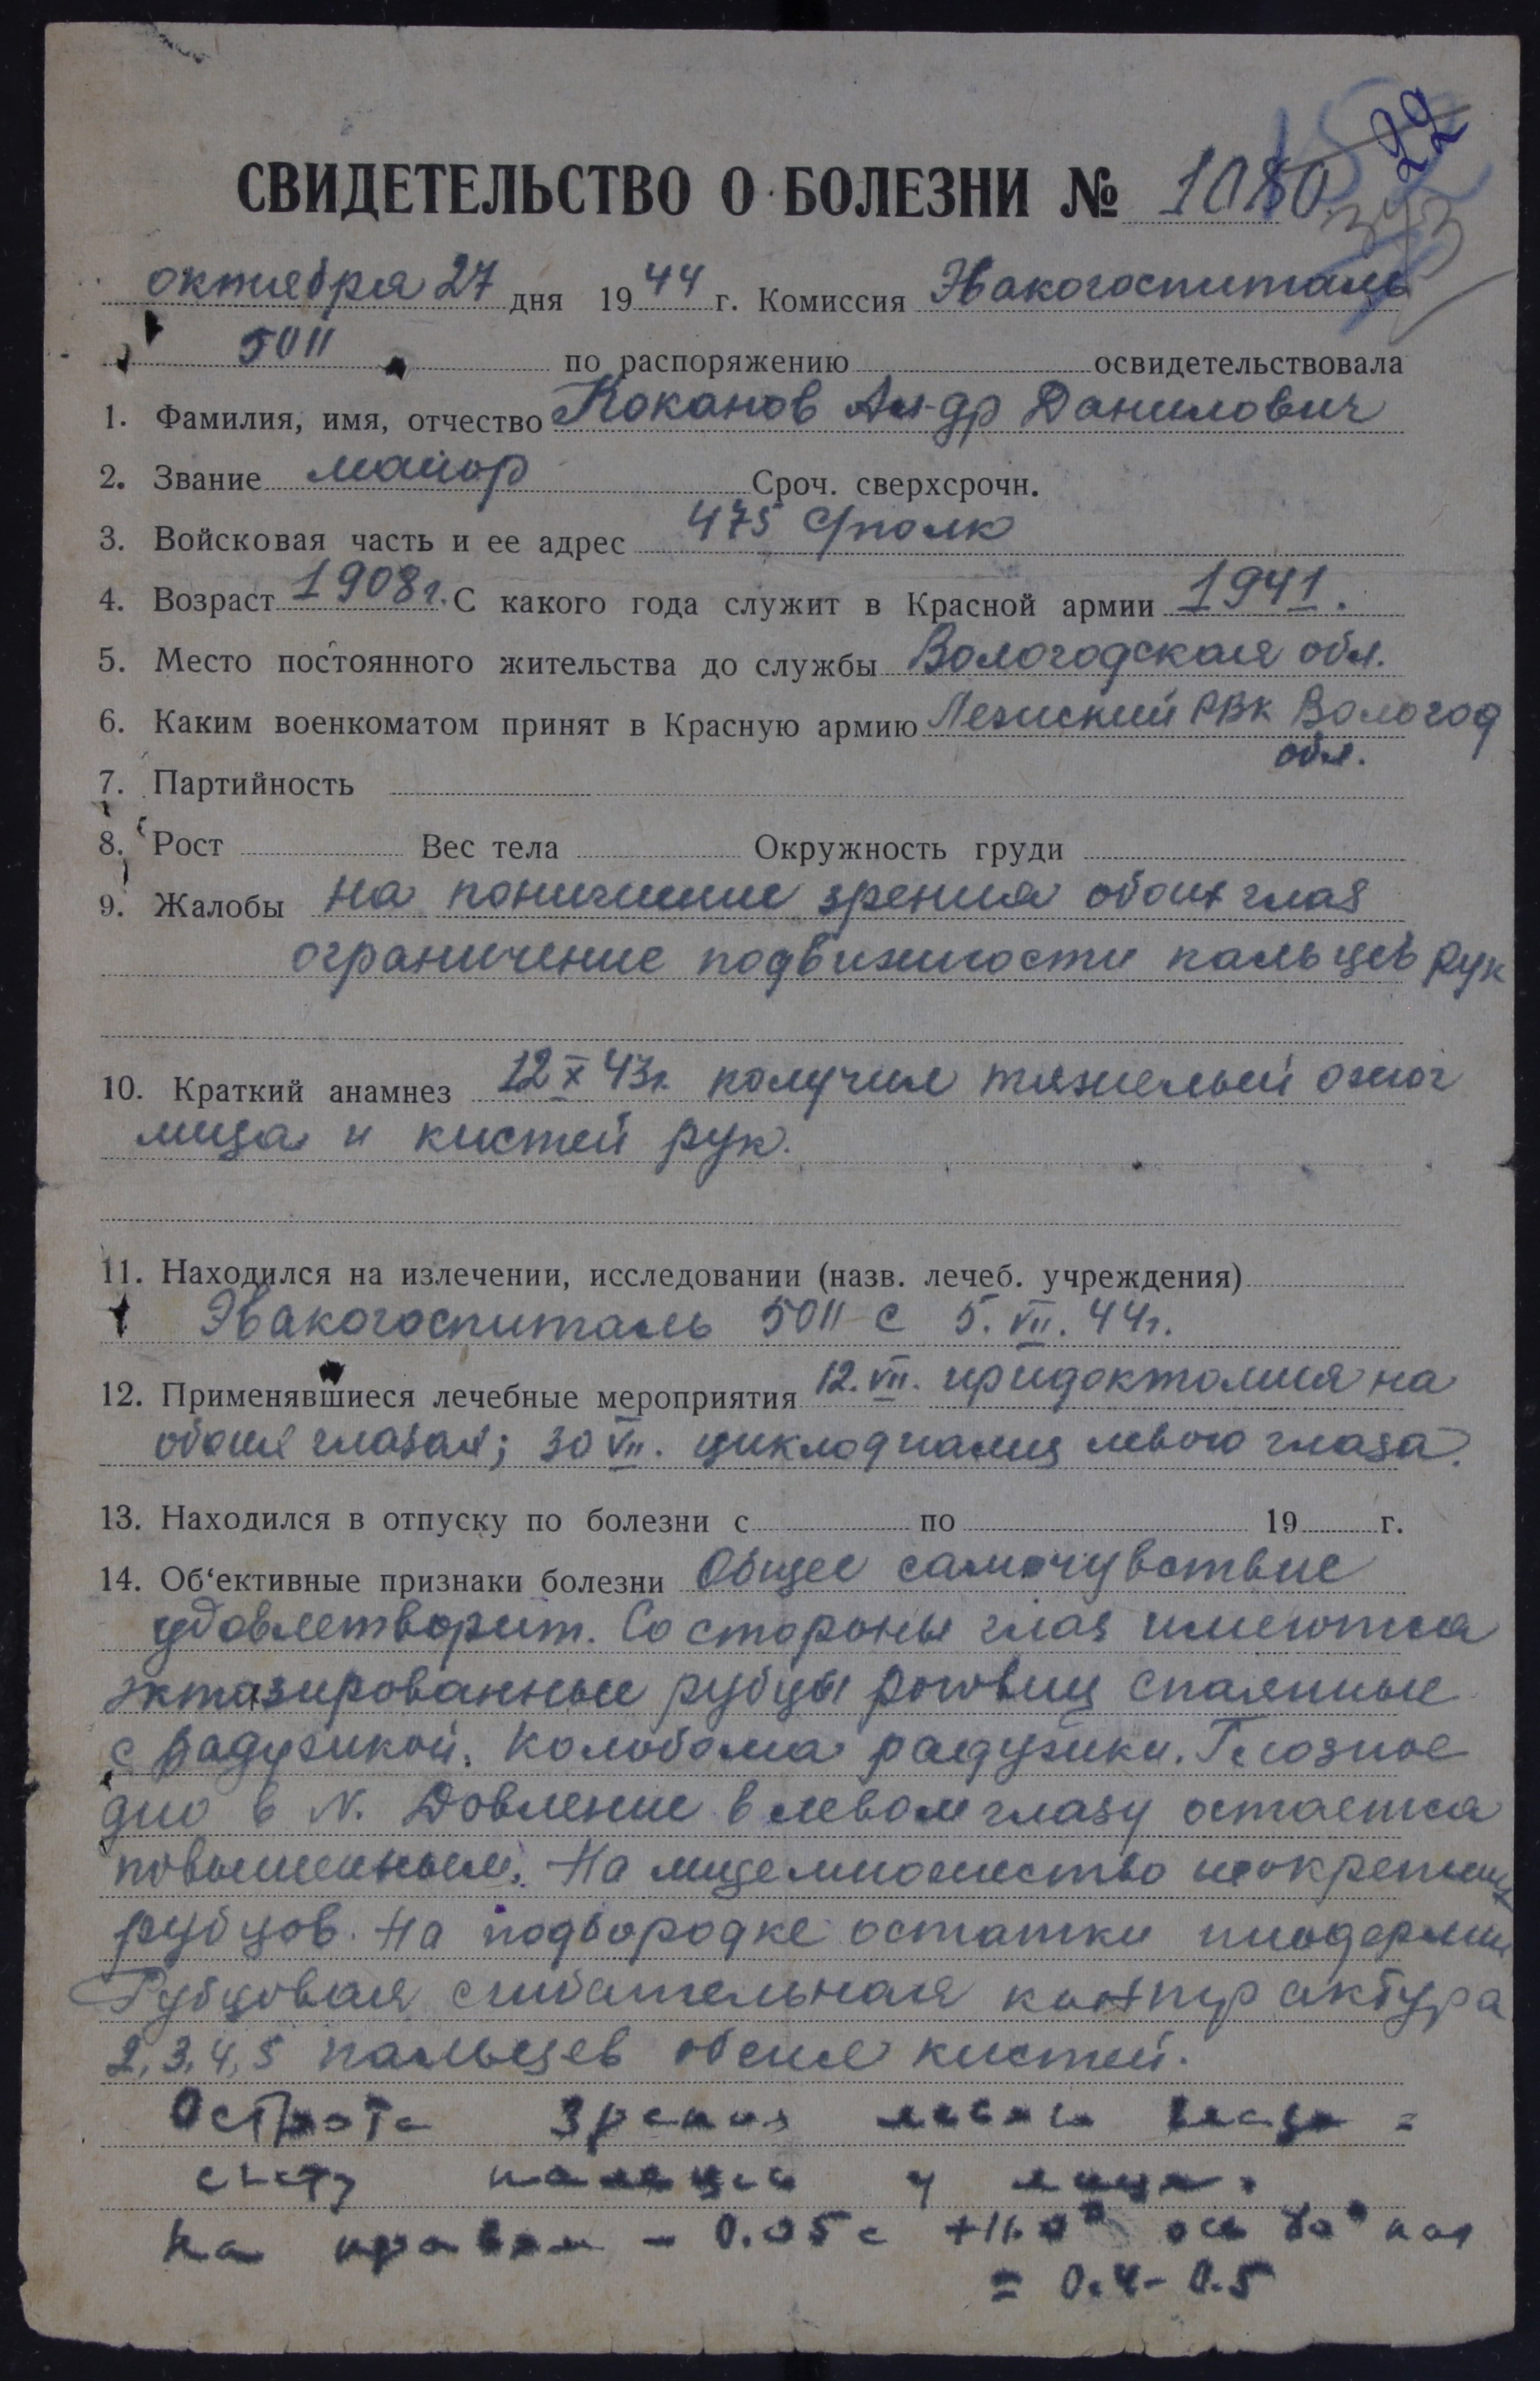 22
СВИДЕТЕЛЬСТВО О БОЛЕЗНИ № 1080
373
октября 27 дня 1944 г. Комиссия Эвакогоспиталь
5011 по распоряжению освидетельствовала
1. Фамилия, имя, отчество Коканов Ал-др Данилович
2. Звание майор Сроч. сверхсрочн.
3. Войсковая часть и ее адрес 475 Сполк
4. Возраст 1908г. С какого года служит в Красной армии 1941.
5. Место постоянного жительства до службы Вологодская обл.
6. Каким военкоматом принят в Красную армию Лежский РВК Вологод
обл.
7. Партийность
8. Рост Вес тела Окружность груди
9. Жалобы на понижение зрения обоих глаз
ограничение подвижности пальцев рук
10. Краткий анамнез 12 X 43г. получил тяжелый ожог
лица и кистей рук.
11. Находился на излечении, исследовании (назв. лечеб. учреждения)
Эвакогоспиталь 5011 с 5. VII. 44г.
12. Применявшиеся лечебные мероприятия 12. VII. иридэктомия на
обоих глазах; 30 VII. циклодиализ левого глаза.
13. Находился в отпуску по болезни с по 19 г.
14. Об'ективные признаки болезни Общее самочувствие
удовлетворит. Со стороны глаз имеются
эктазированные рубцы роговиц спаянные
с радужкой. Колобома радужки. Глазное
дно в N. Давление в левом глазу остается
повышенным. На лице множество
рубцов. На подбородке остатки пиодермии
Рубцовая сгибательная контрактура
2, 3, 4, 5 пальцев обеих кистей.
Острота зрения левого глаза =
счету пальцев у лица.
На правом - 0.05 с ось кор
= 0.4 - 0.5